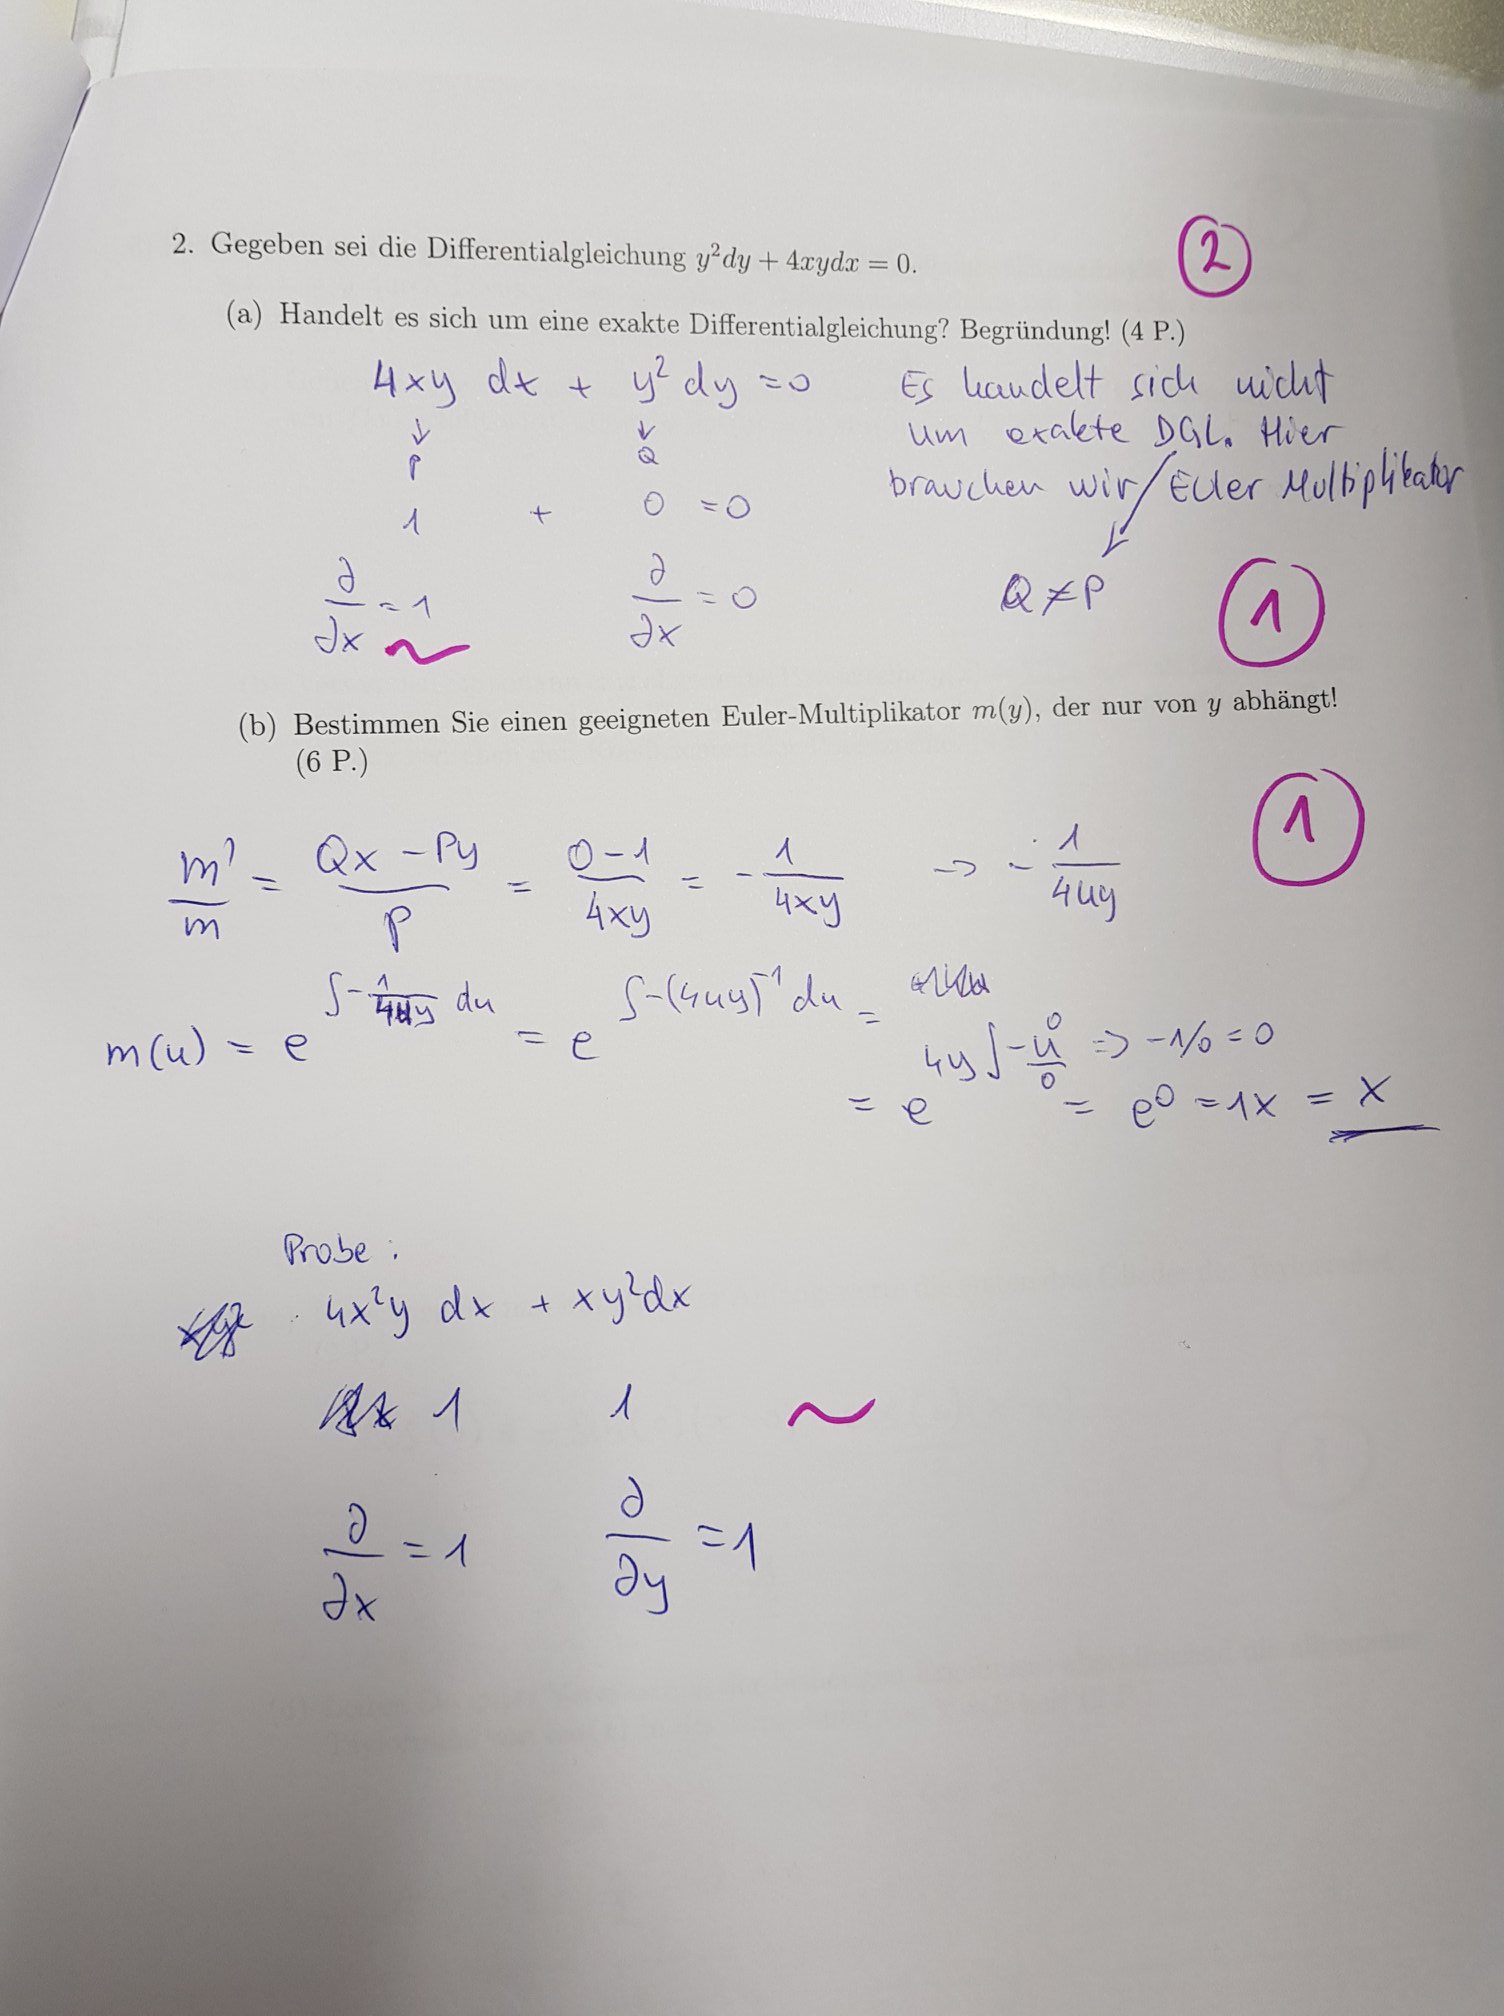 2. Gegeben sei die Differentialgleichung y²dy + 4xydx = 0.
2
(a) Handelt es sich um eine exakte Differentialgleichung? Begründung! (4 P.)
4xy dx + y² dy = 0
↓ ↓
P Q
1 + 0 = 0
∂/∂x = 1 ∂/∂x = 0
Es handelt sich nicht
um exakte DGL. Hier
brauchen wir Euler Multiplikator
Q ≠ P
1
(b) Bestimmen Sie einen geeigneten Euler-Multiplikator m(y), der nur von y abhängt!
(6 P.)
1
m'/m = (Qx - Py)/P = (0-1)/4xy = - 1/4xy → - 1/4uy
m(u) = e^(∫ - 1/4uy du) = e^(∫ -(4uy)^-1 du) =
= e^(4y ∫ - u^0/0 ⇒ -1/0 = 0) = e^0 = 1x = x
Probe:
4x²y dx + xy²dx
1 1
∂/∂x = 1 ∂/∂y = 1